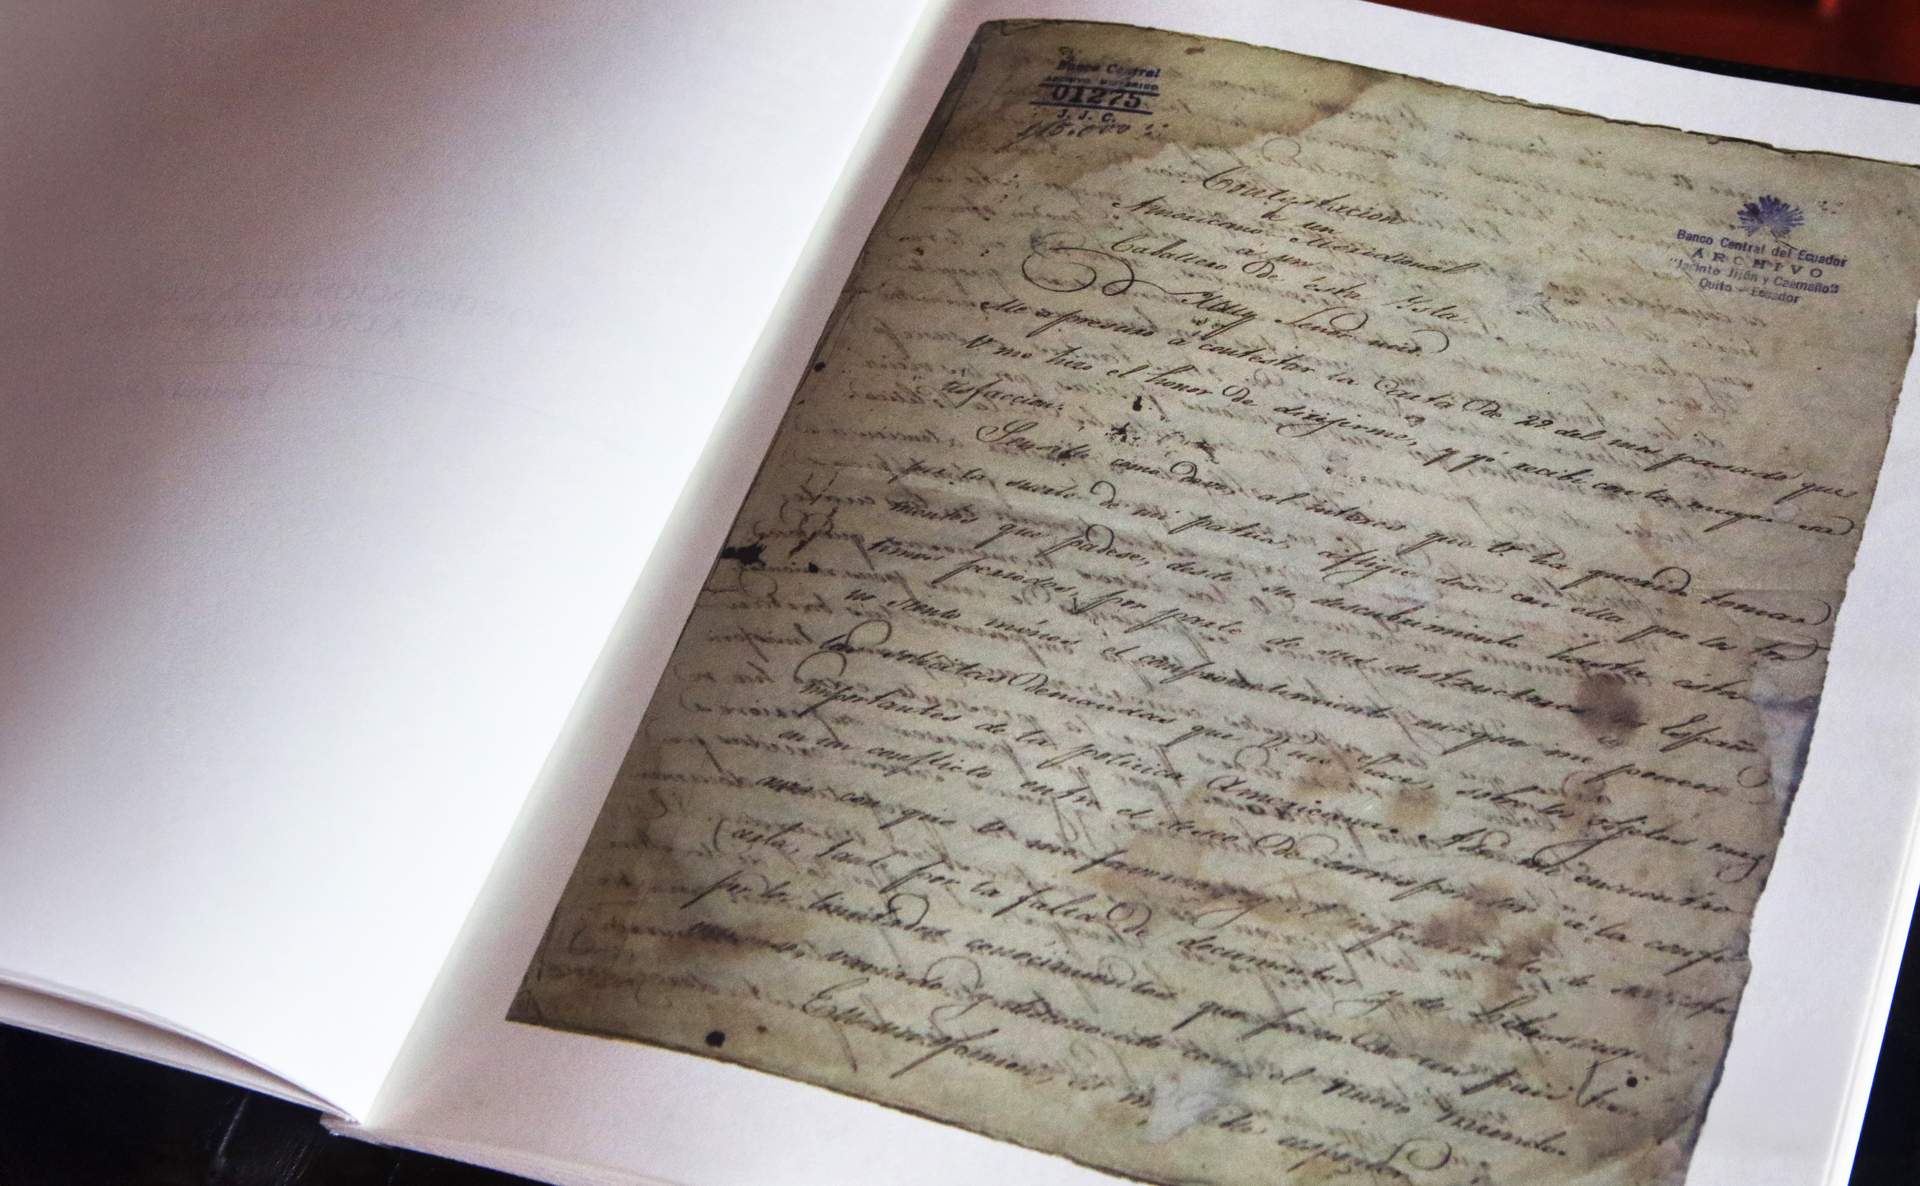 Banco Central
ARCHIVO HISTORICO
01275
J. J. C.
Banco Central del Ecuador
ARCHIVO
"Jacinto Jijón y Caamaño"
Quito - Ecuador
Contestacion
de un
Americano Meridional
a un
Caballero de esta Ysla.
Muy Señor mio.
Me apresuro á contestar la Carta de 29 del mes pasado que
V me hizo el honor de dirijirme, y yo recibí con la mayor sa
tisfaccion.
Sencible como devo, al interes que V ha querido tomar
por la suerte de mi patria, afligiendose con ella por los tor
mentos que padese, desde su descubrimiento hasta estos
timos periodos, por parte de sus destructores los Españo
no siento ménos el comprometimiento en que me ponen
las solicitas demandas que V me hace, sobre los objetos mas
importantes de la politica Americana. Asi, me encuentro
en un conflicto entre el deseo de corresponder á la confi
ansa con que V me favorece, y el impedimento de satisfa
cerla, tanto por la falta de documentos y de libros, quanto
por los limitados conocimientos que poseo de un pais tan
inmenso, variado y desconocido como el nuevo mundo.
En mi opinion, es